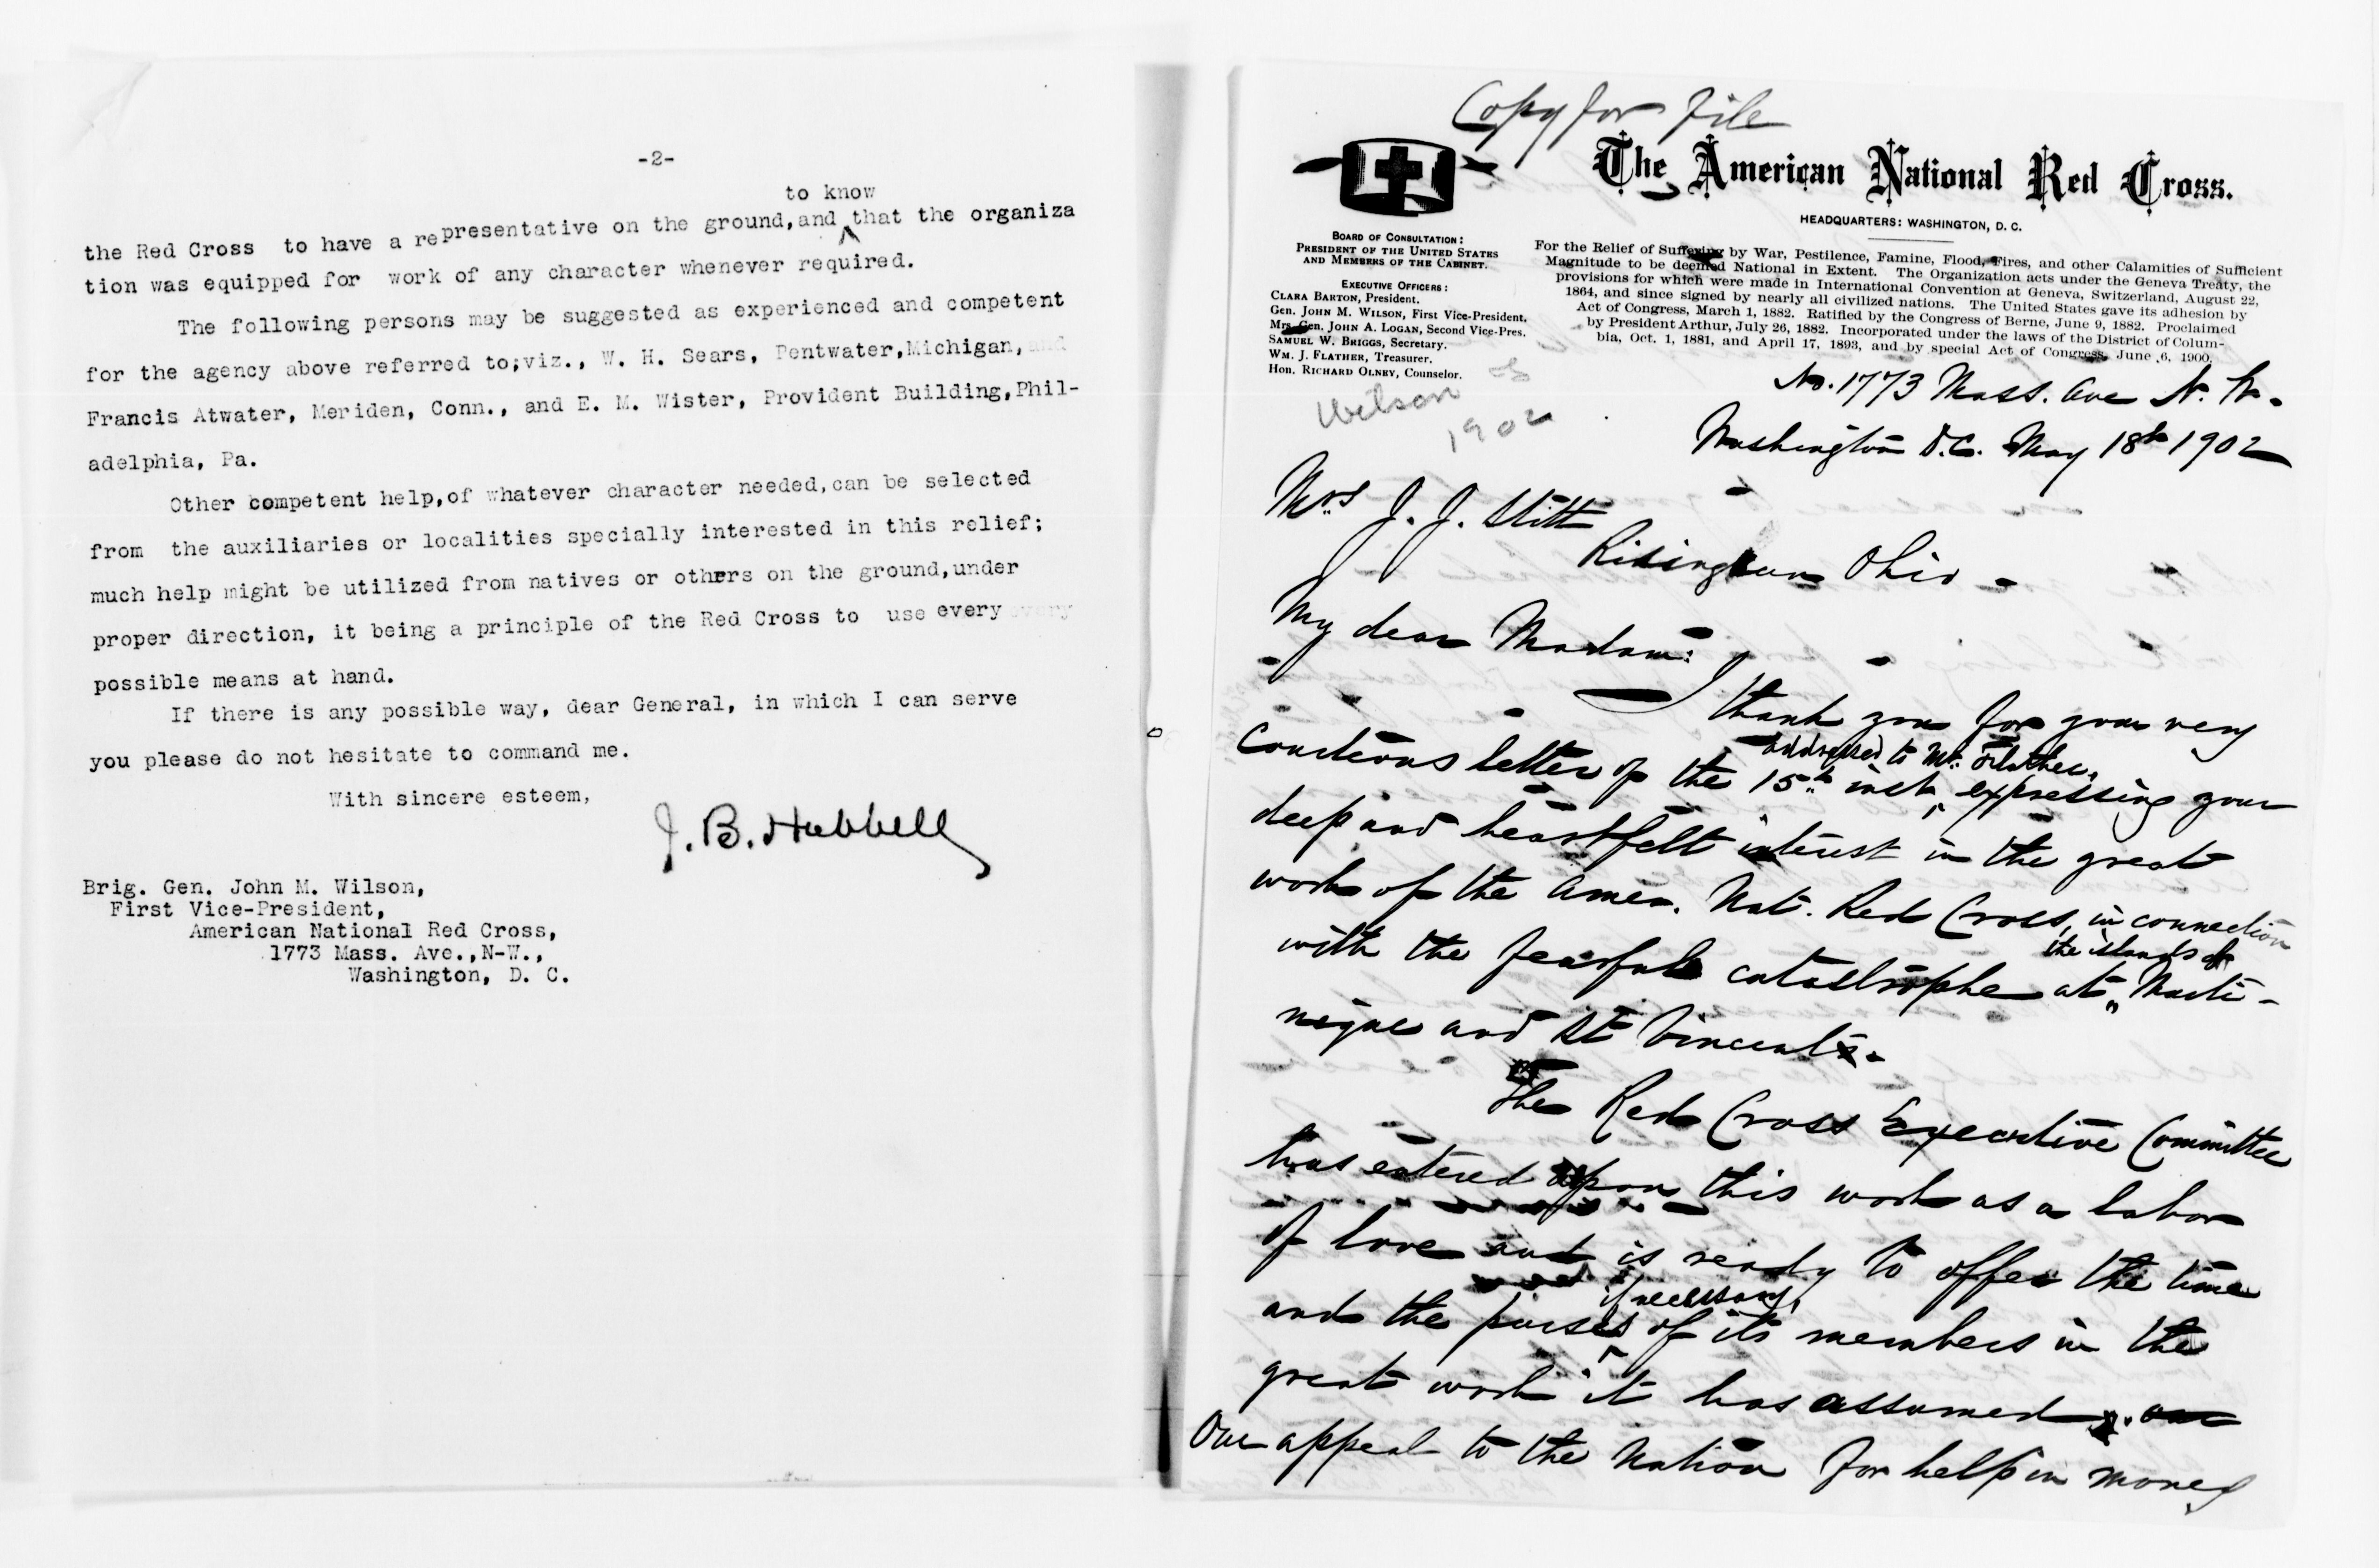 -2-
to know
the Red Cross to have a representative on the ground,and that the organiza
tion was equipped for work of any character whenever required.
The following persons may be suggested as experienced and competent
for the agency above referred to;viz., W. H. Sears, Pentwater,Michigan, and
Francis Atwater, Meriden, Conn., and E. M. Wister, Provident Building,Phil-
adelphia, Pa.
Other competent help,of whatever character needed,can be selected
from the auxiliaries or localities specially interested in this relief;
much help might be utilized from natives or others on the ground,under
proper direction, it being a principle of the Red Cross to use every every
possible means at hand.
If there is any possible way, dear General, in which I can serve
you please do not hesitate to command me.
With sincere esteem,
J. B. Hubbell
Brig. Gen. John M. Wilson,
First Vice-President,
American National Red Cross,
1773 Mass. Ave.,N-W.,
Washington, D. C.
Copy for File
The American National Red Cross.
HEADQUARTERS: WASHINGTON, D. C.
BOARD OF CONSULTATION:
PRESIDENT OF THE UNITED STATES
AND MEMBERS OF THE CABINET.
EXECUTIVE OFFICERS:
CLARA BARTON, President.
Gen. JOHN M. WILSON, First Vice-President.
Mrs. Gen. JOHN A. LOGAN, Second Vice-Pres.
SAMUEL W. BRIGGS, Secretary.
WM. J. FLATHER, Treasurer.
Hon. RICHARD OLNEY, Counselor.
For the Relief of Suffering by War, Pestilence, Famine, Flood, Fires, and other Calamities of Sufficient
Magnitude to be deemed National in Extent. The Organization acts under the Geneva Treaty, the
provisions for which were made in International Convention at Geneva, Switzerland, August 22,
1864, and since signed by nearly all civilized nations. The United States gave its adhesion by
Act of Congress, March 1, 1882. Ratified by the Congress of Berne, June 9, 1882. Proclaimed
by President Arthur, July 26, 1882. Incorporated under the laws of the District of Colum-
bia, Oct. 1, 1881, and April 17, 1893, and by special Act of Congress June 6, 1900.
Wilson
1902
No. 1773 Mass. Ave N. W.
Washington D.C. May 18th 1902
Mrs J. J. Stitt
Risingsun Ohio
My dear Madam:
I thank you for your very
addressed to Mr. Flather,
courteous letter of the 15th inst, expressing your
deep and heartfelt interest in the great
work of the Amer. Nat. Red Cross, in connection
the islands of
with the fearful catastrophe at Marti-
nique and St Vincent.
The Red Cross Executive Committee
has entered upon this work as a labor
of love and is ready to offer the time
if necessary,
and the purses of its members in the
great work it has assumed.
Our appeal to the Nation for help in money